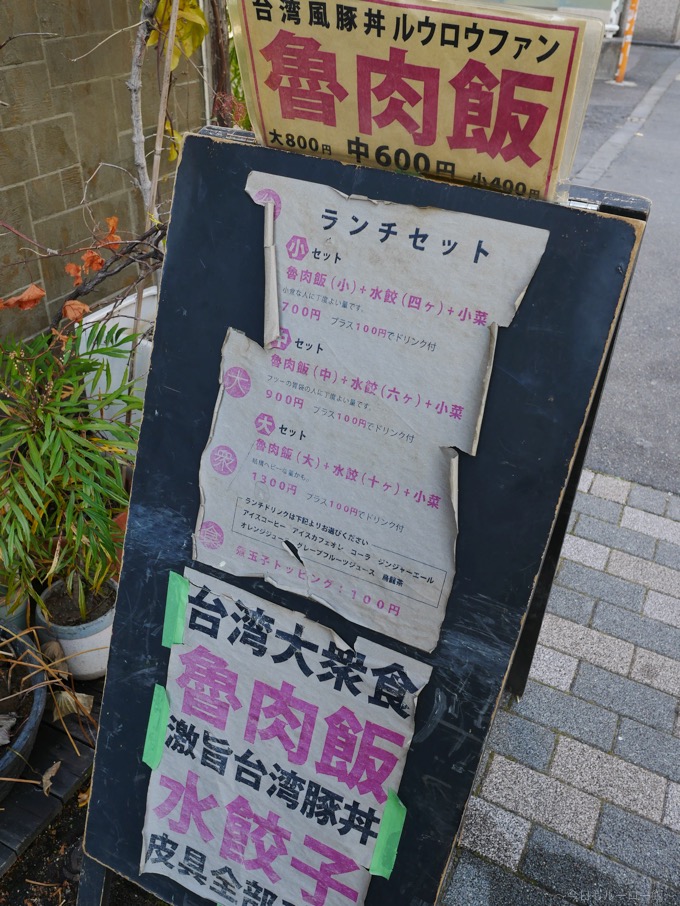 台湾風豚丼 ルウロウファン
魯肉飯
大800円 中600円 小400円
ランチセット
小セット
魯肉飯(小)+水餃(四ケ)+小菜
小食な人に丁度よい量です。
700円 プラス100円でドリンク付
セット
魯肉飯(中)+水餃(六ケ)+小菜
フツーの胃袋の人に丁度よい量です。
900円 プラス100円でドリンク付
大セット
魯肉飯(大)+水餃(十ケ)+小菜
結構ヘビーな量かも。
1300円 プラス100円でドリンク付
大
衆
食
ランチドリンクは下記よりお選びください
アイスコーヒー アイスカフェオレ コーラ ジンジャーエール
オレンジジュース グレープフルーツジュース 烏龍茶
玉子トッピング:100円
台湾大衆食
魯肉飯
激旨台湾豚丼
水餃子
皮具全部